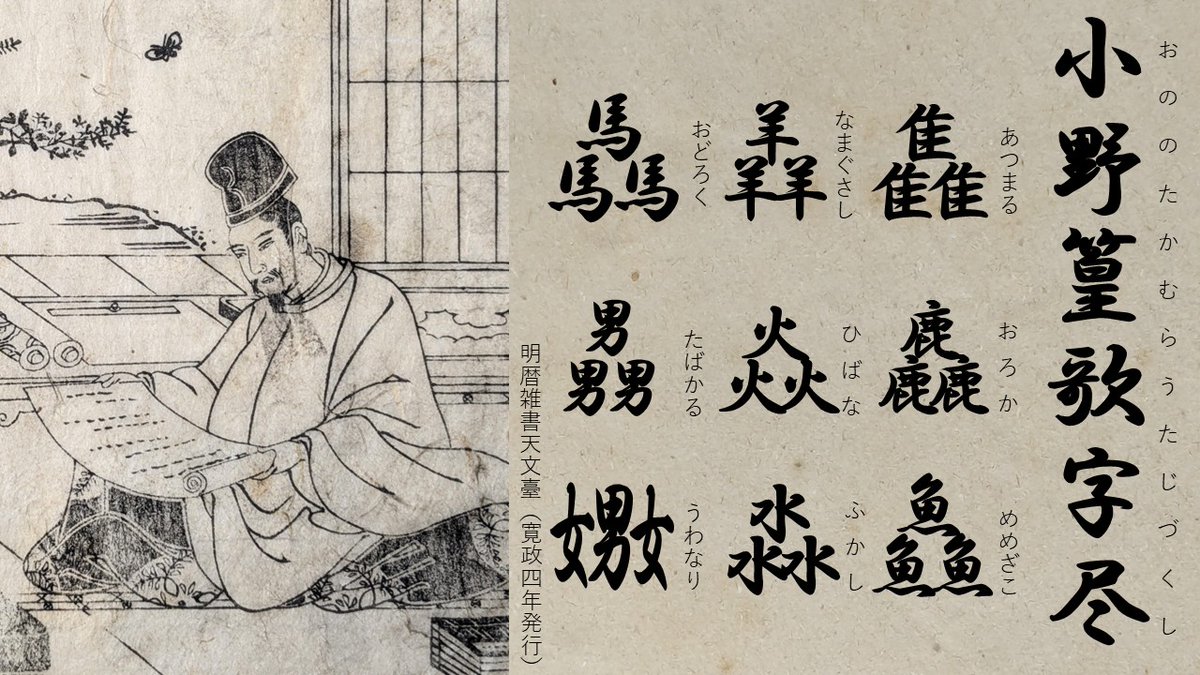 小野篁歌字尽
おののたかむらうたじづくし
雥
あつまる
麤
おろか
鱻
めめざこ
羴
なまぐさし
焱
ひばな
淼
ふかし
驫
おどろく
男男男
たばかる
嫐
うわなり
明暦雑書天文臺（寛政四年発行）